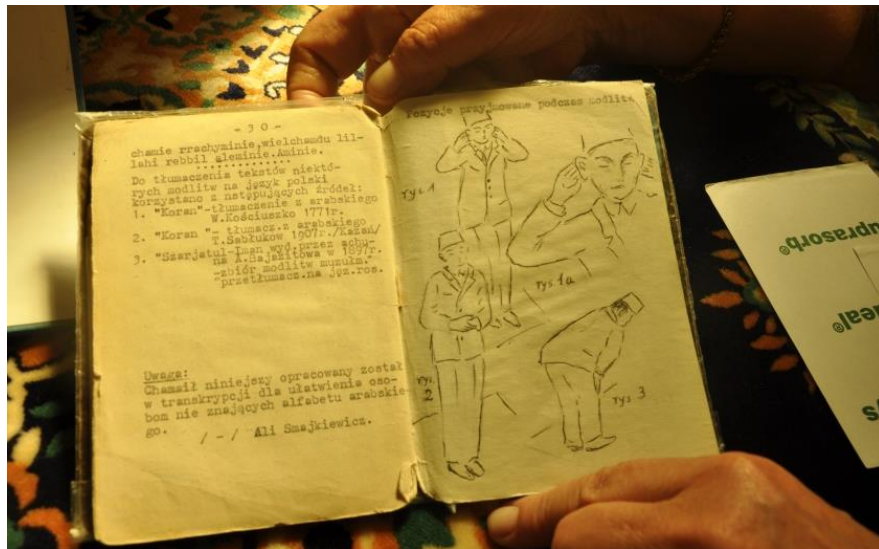 - 30 -
chamie rrachyminie,wielchamdu lil-
lahi rebbil aleminie.Aminie.
Do tłumaczenia tekstów niektó-
rych modlitw na język polski
korzystano z nstępujących źródeł:
1. "Koran"-tłumaczenie z arabskiego
W.Kościuszko 1771r.
2. "Koran "- tłumacz.z arabskiego
T.Sabłukow 1907r./Kazań/
3. "Szarjatul-Iman wyd.przez achu-
na A.Bajazitowa w 1897r.
-zbiór modlitw muzułm."
przetłumacz.na jęz.ros.
Uwaga:
Chamaił niniejszy opracowany został
w transkrypcji dla ułatwienia oso-
bom nie znających alfabetu arabskie-
go.
/ - / Ali Smajkiewicz.
Pozycje przyjmowane podczas modlitw
rys 1
rys. 1a
rys. 2
rys 3
uprasorb®
eal®
ys